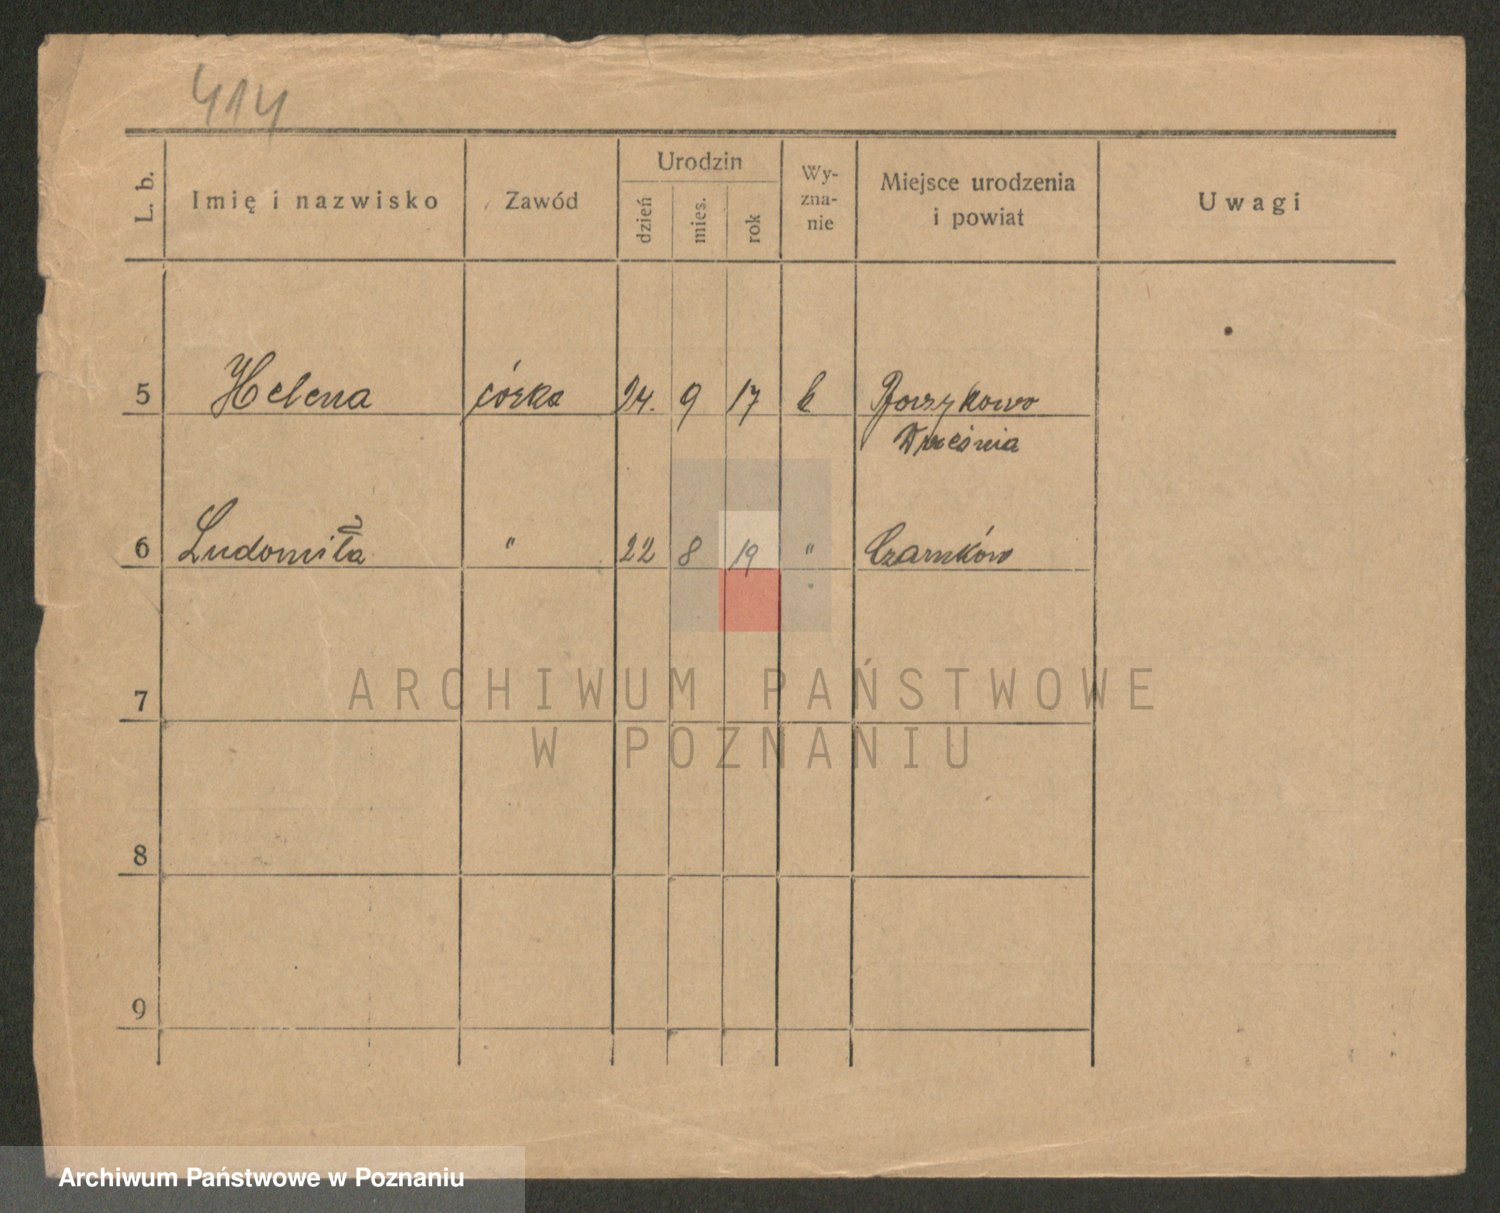 414
L. b.
Imię i nazwisko
Zawód
Urodzin
dzień
mies.
rok
Wy-
zna-
nie
Miejsce urodzenia
i powiat
Uwagi
5 Helena córka 24. 9 17 k
6 Ludomiła " 22 8 19 " Czarnków
7
8
9
ARCHIWUM PAŃSTWOWE
W POZNANIU
Archiwum Państwowe w Poznaniu